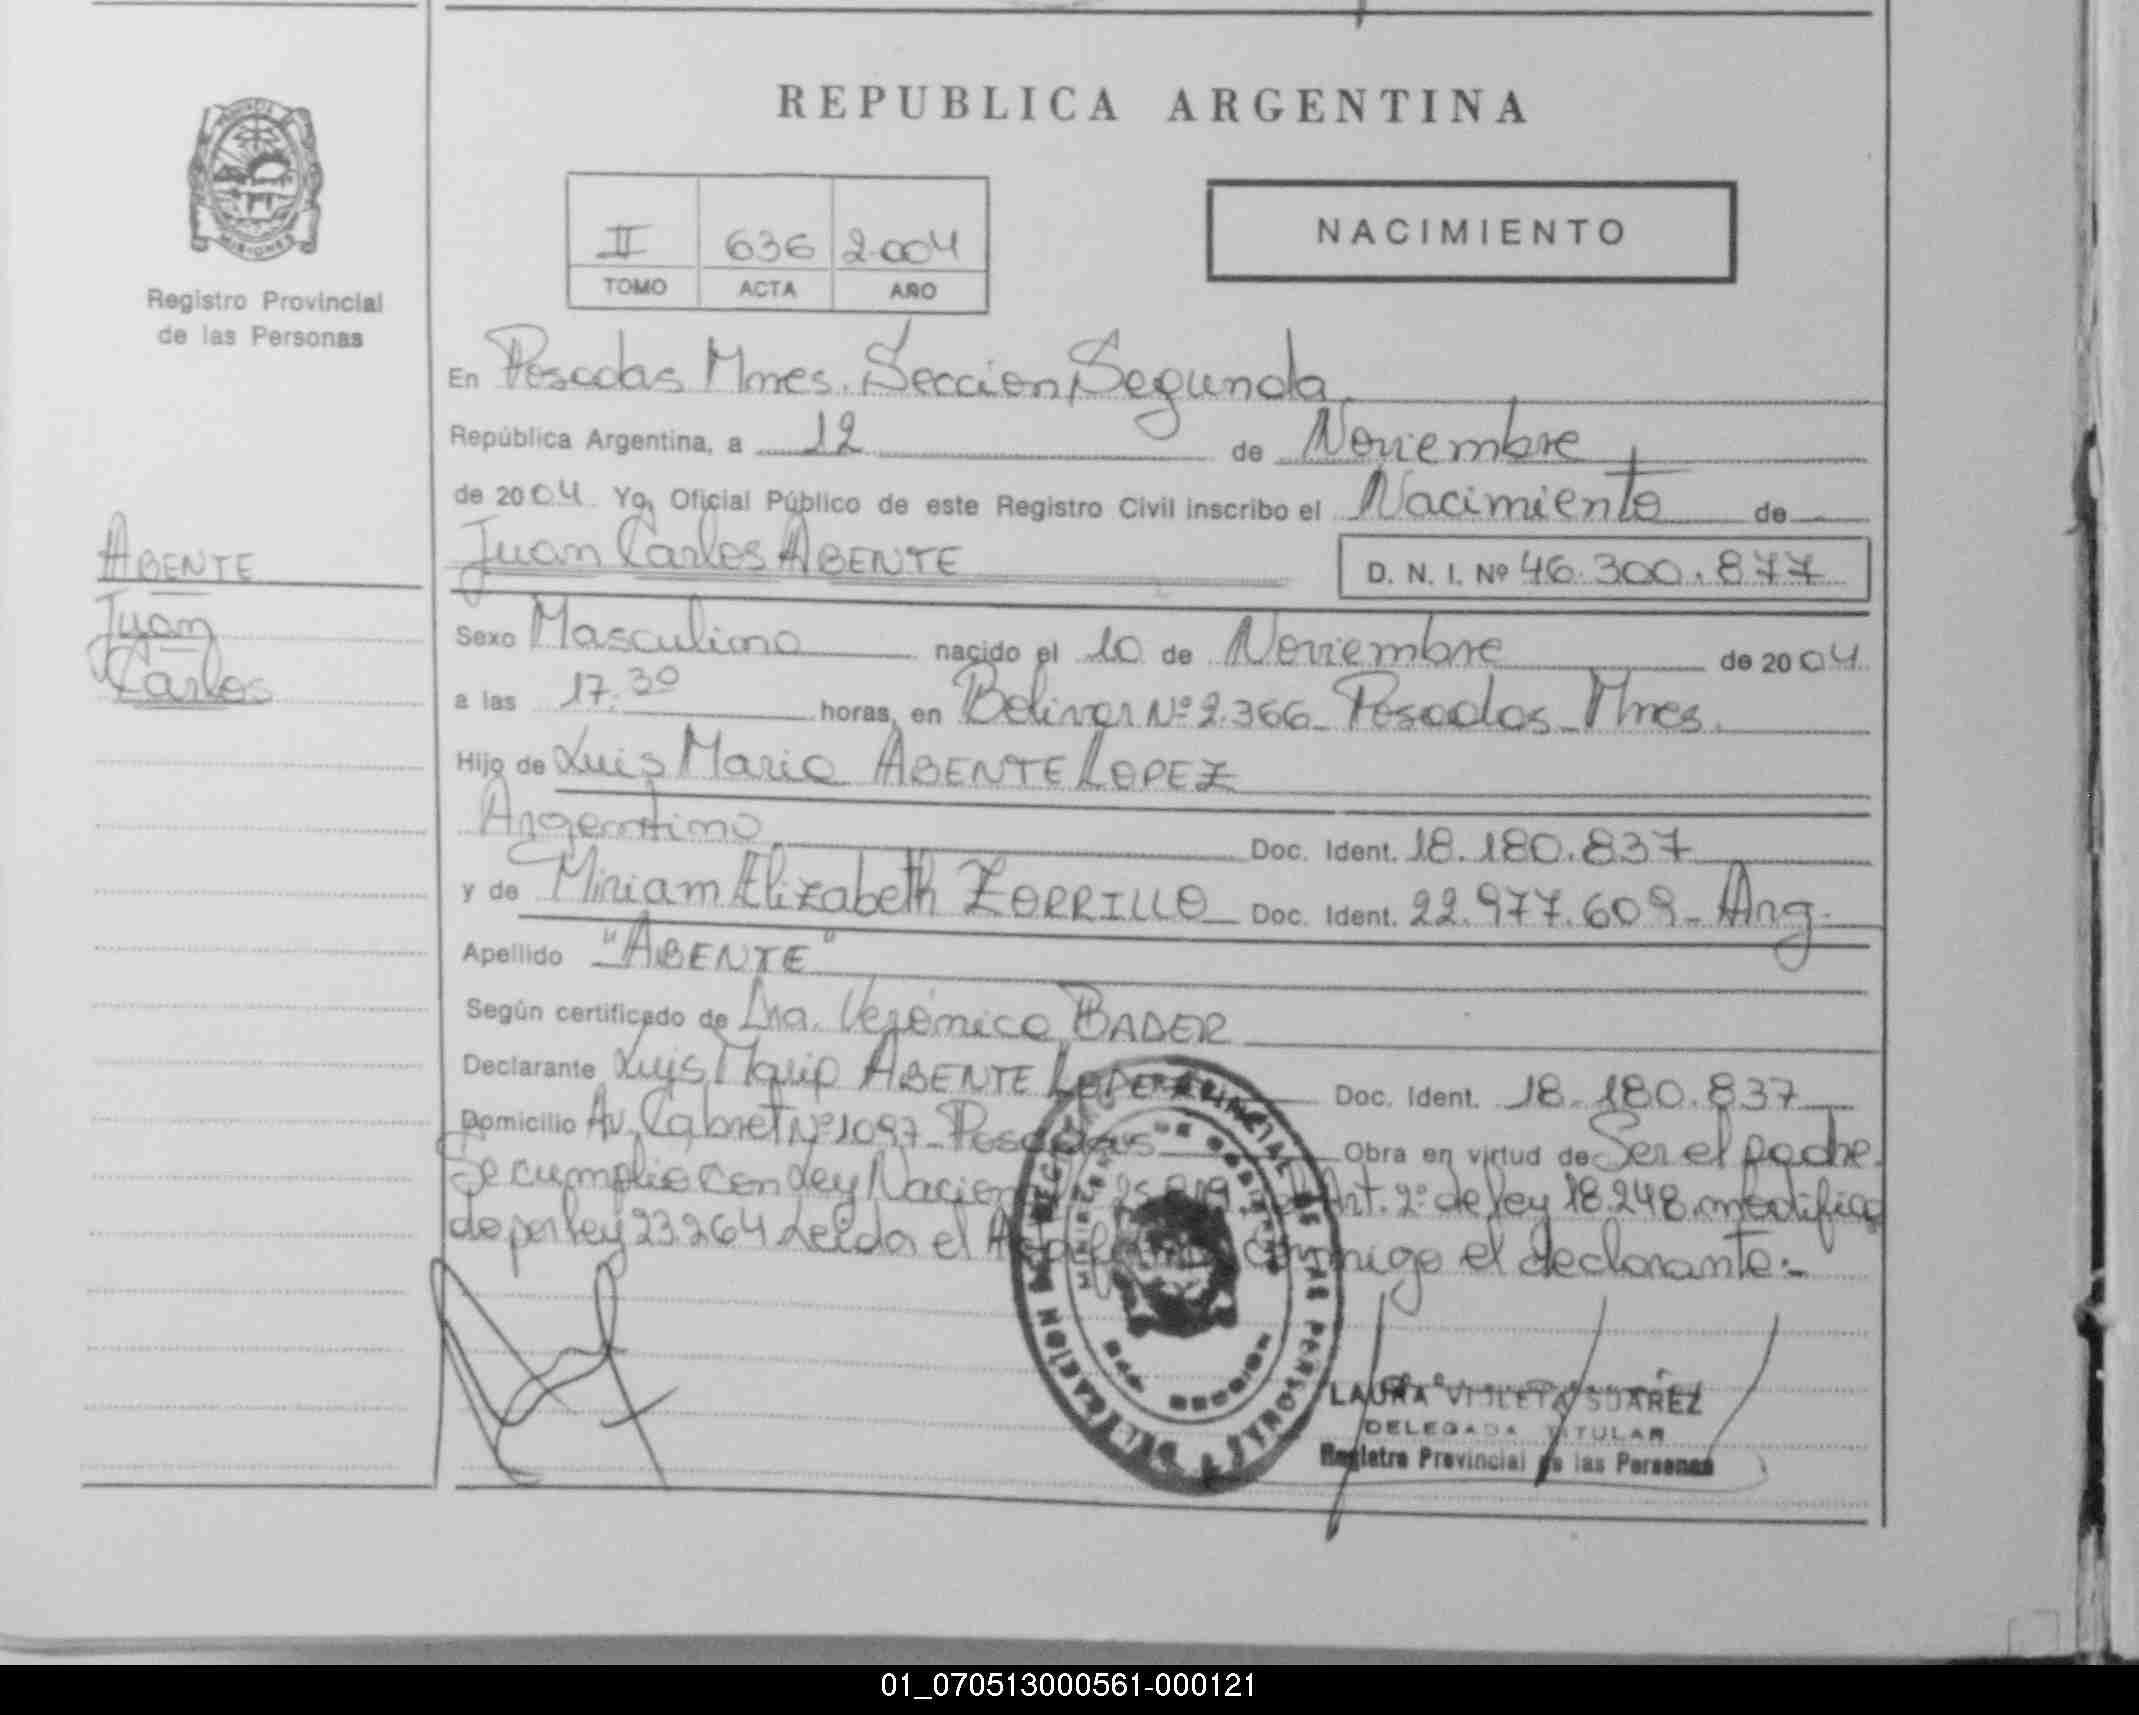 REPUBLICA ARGENTINA
PROVINCIA
MISIONES
Registro Provincial
de las Personas
II 636 2.004
TOMO ACTA AÑO
NACIMIENTO
En Posadas Mnes. Seccion Segunda
República Argentina, a 12 de Noviembre
de 2004 Yo, Oficial Público de este Registro Civil inscribo el Nacimiento de
Juan Carlos ABENTE D. N. I. Nº 46.300.877
ABENTE
Juan
Carlos
Sexo Masculino nacido el 10 de Noviembre de 2004
a las 17.30 horas, en Bolivar Nº 2.366 - Posadas - Mnes.
Hijo de Luis Maria ABENTE LOPEZ
Argentino Doc. Ident. 18.180.837
y de Miriam Elizabeth ZORRILLO Doc. Ident. 22.977.609 - Arg.
Apellido "ABENTE"
Según certificado de Dra. Verónica BADER
Declarante Luis Maria ABENTE LOPEZ Doc. Ident. 18.180.837
Domicilio Av. Cabret Nº 1097 - Posadas Obra en virtud de Ser el padre.
Se cumplio con Ley Nacional Art. 2º de ley 18.248 modifica
do por ley 23.264 Leida el conmigo el declarante.-
DIRECCION REGISTRO PROVINCIAL DE LAS PERSONAS
MINISTERIO DE GOBIERNO
MISIONES
LAURA VIOLETA SUAREZ
DELEGADA TITULAR
Registro Provincial de las Personas
01_070513000561-000121